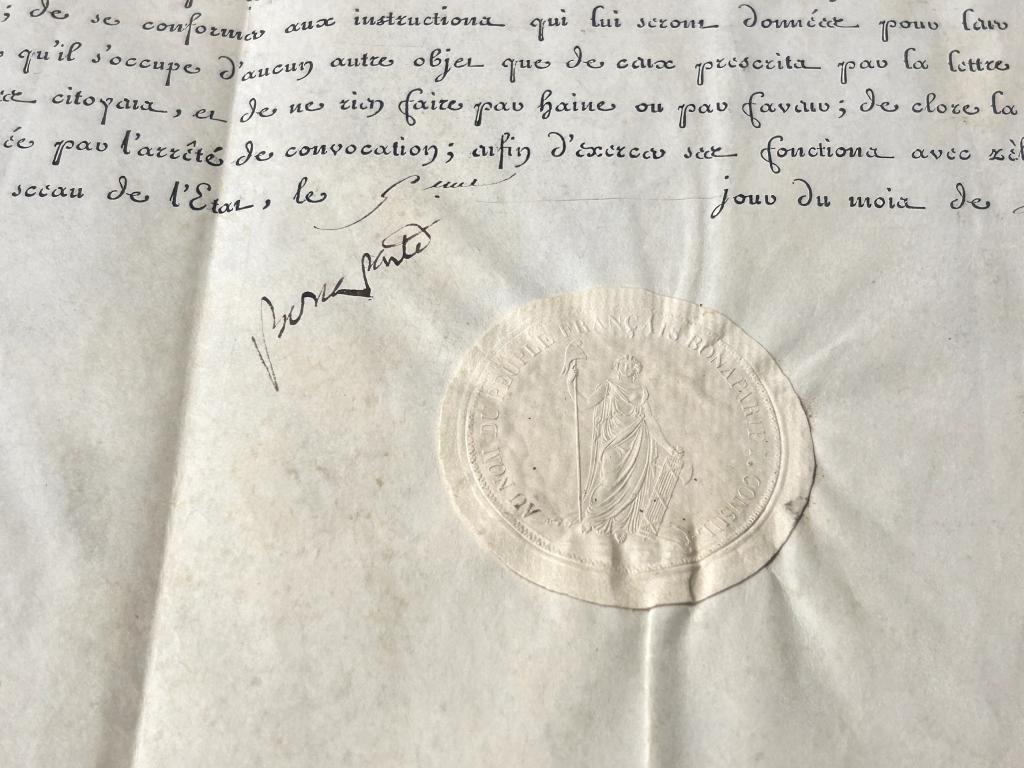 ; de se conformer aux instructions qui lui seront données pour leur
qu'il s'occupe d'aucun autre objet que de ceux prescrits par la lettre
citoyens, et de ne rien faire par haine ou par faveur; de clore la
ée par l'arrêté de convocation; enfin d'éxercer ses fonctions avec zèl
sceau de l'Etat, le jour du mois de
Bonaparte
AU NOM DU PEUPLE FRANÇAIS BONAPARTE. CONSUL